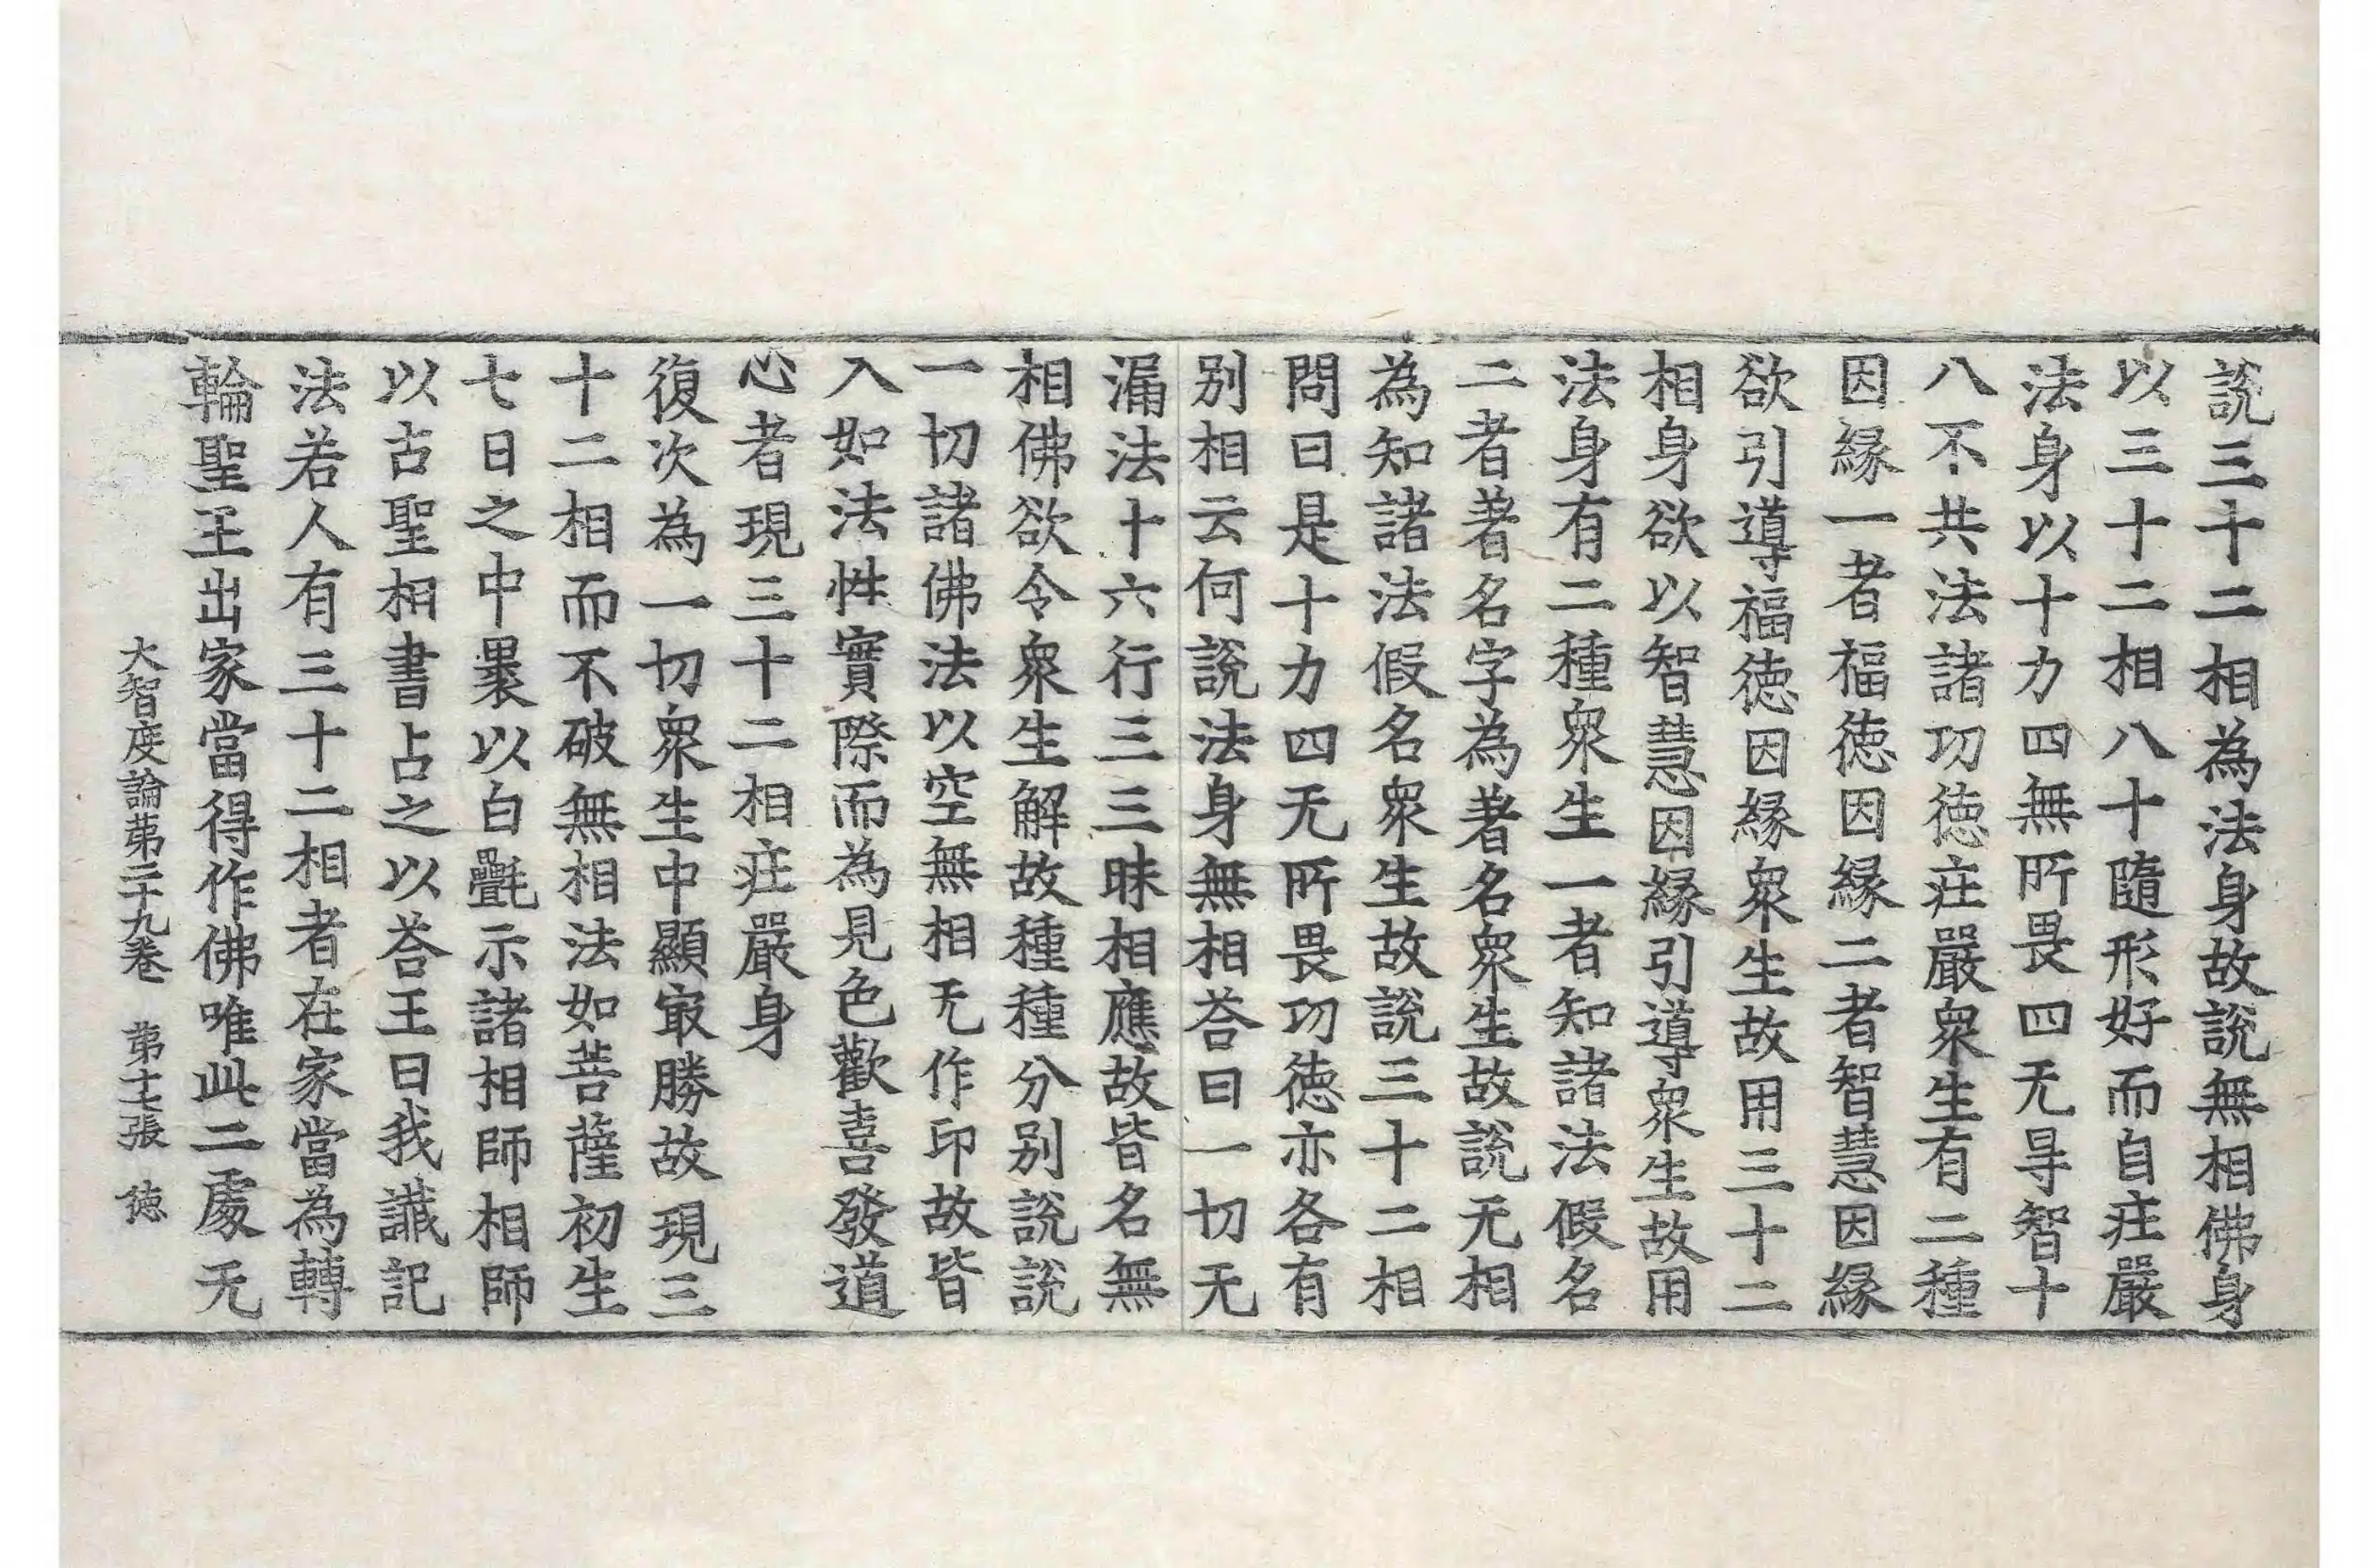 說三十二相為法身故說無相佛身
以三十二相八十隨形好而自庄嚴
法身以十力四無所畏四无㝵智十
八不共法諸功徳庄嚴衆生有二種
因縁一者福徳因縁二者智慧因縁
欲引導福徳因縁衆生故用三十二
相身欲以智慧因縁引導衆生故用
法身有二種衆生一者知諸法假名
二者著名字為著名衆生故說无相
為知諸法假名衆生故說三十二相
問曰是十力四无所畏功徳亦各有
别相云何說法身無相荅曰一切无
漏法十六行三三昧相應故皆名無
相佛欲令衆生解故種種分别說說
一切諸佛法以空無相无作印故皆
入如法性實際而為見色歡喜發道
心者現三十二相庄嚴身
復次為一切衆生中顯㝡勝故現三
十二相而不破無相法如菩薩初生
七日之中褁以白㲲示諸相師相師
以古聖相書占之以荅王曰我讖記
法若人有三十二相者在家當為轉
輪聖王出家當得作佛唯此二處无
大智度論第二十九卷 第十七張 徳